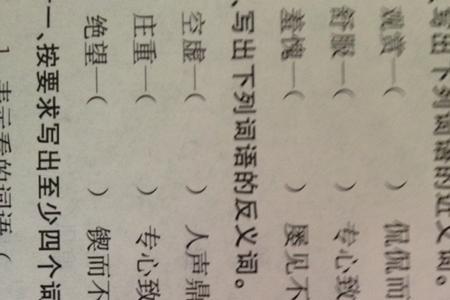 、写出下列词语的近义词。
观赏—(　　) 侃侃而
舒服—(　　) 专心致
羞愧—(　　) 屡见不
、写出下列词语的反义词。
空虚—(　　) 人声鼎
庄重—(　　) 专心致
绝望—(　　) 锲而不
一、按要求写出至少四个词
1. 表示看的词语(